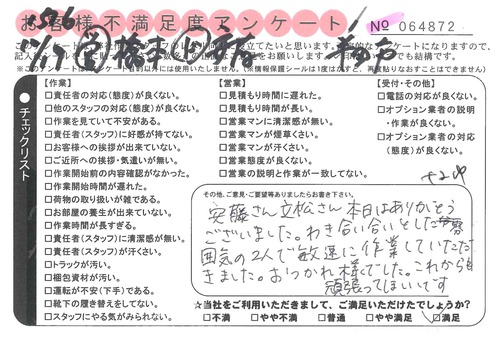 お客様不満足度アンケート
No 064872
【作業】
□責任者(態度)が良くない。
□他のスタッフの対応(態度)が良くない。
□作業を見ていて不安がある。
□責任者(スタッフ)に好感が持てない。
□お客様への挨拶が出来ていない。
□ご近所への挨拶・気遣いが無い。
□作業開始前の内容確認がなかった。
□作業開始時間が遅れた。
□荷物の取り扱いが雑である。
□お部屋の養生が出来ていない。
□作業時間が長すぎる。
□責任者(スタッフ)に清潔感が無い。
□責任者(スタッフ)が汗くさい。
□トラックが汚い。
□梱包資材が汚い。
□運転が不安(下手)である。
□靴下の履き替えをしてない。
□スタッフにやる気がみられない。
【営業】
□見積もり時間に遅れた。
□見積もり時間が長い。
□営業マンに清潔感が無い。
□営業マンが煙草くさい。
□営業マンが汗くさい。
□営業態度が良くない。
□営業の説明と作業が一致してない。
【受付・その他】
□電話の対応が良くない。
□オプション業者の説明
・作業が良くない。
□オプション業者の対応
(態度)が良くない。
チェックリスト
その他、ご意見・ご要望等ありましたらお書き下さい。
安藤さん立松さん本日はありがとう
ございました。わき合い合いとした雰
囲気の2人で敏速に作業していただ
きました。おつかれ様でした。これからも
頑張ってほしいです
☆当社をご利用いただきまして、ご満足いただけたでしょうか?
□不満 □やや不満 □普通 □やや満足 ☑満足